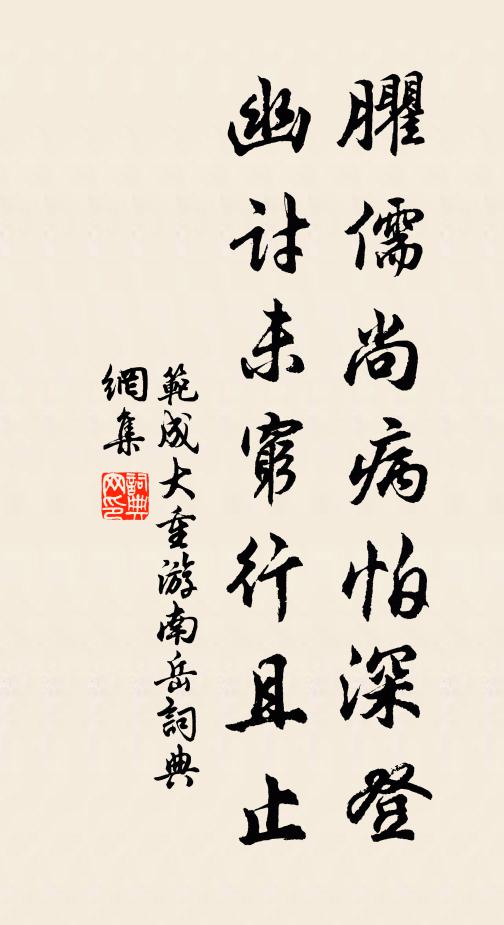 臞儒尚病怕深登
幽討未窮行且止
範成大重游南岳詞典
網集
詞典
网印